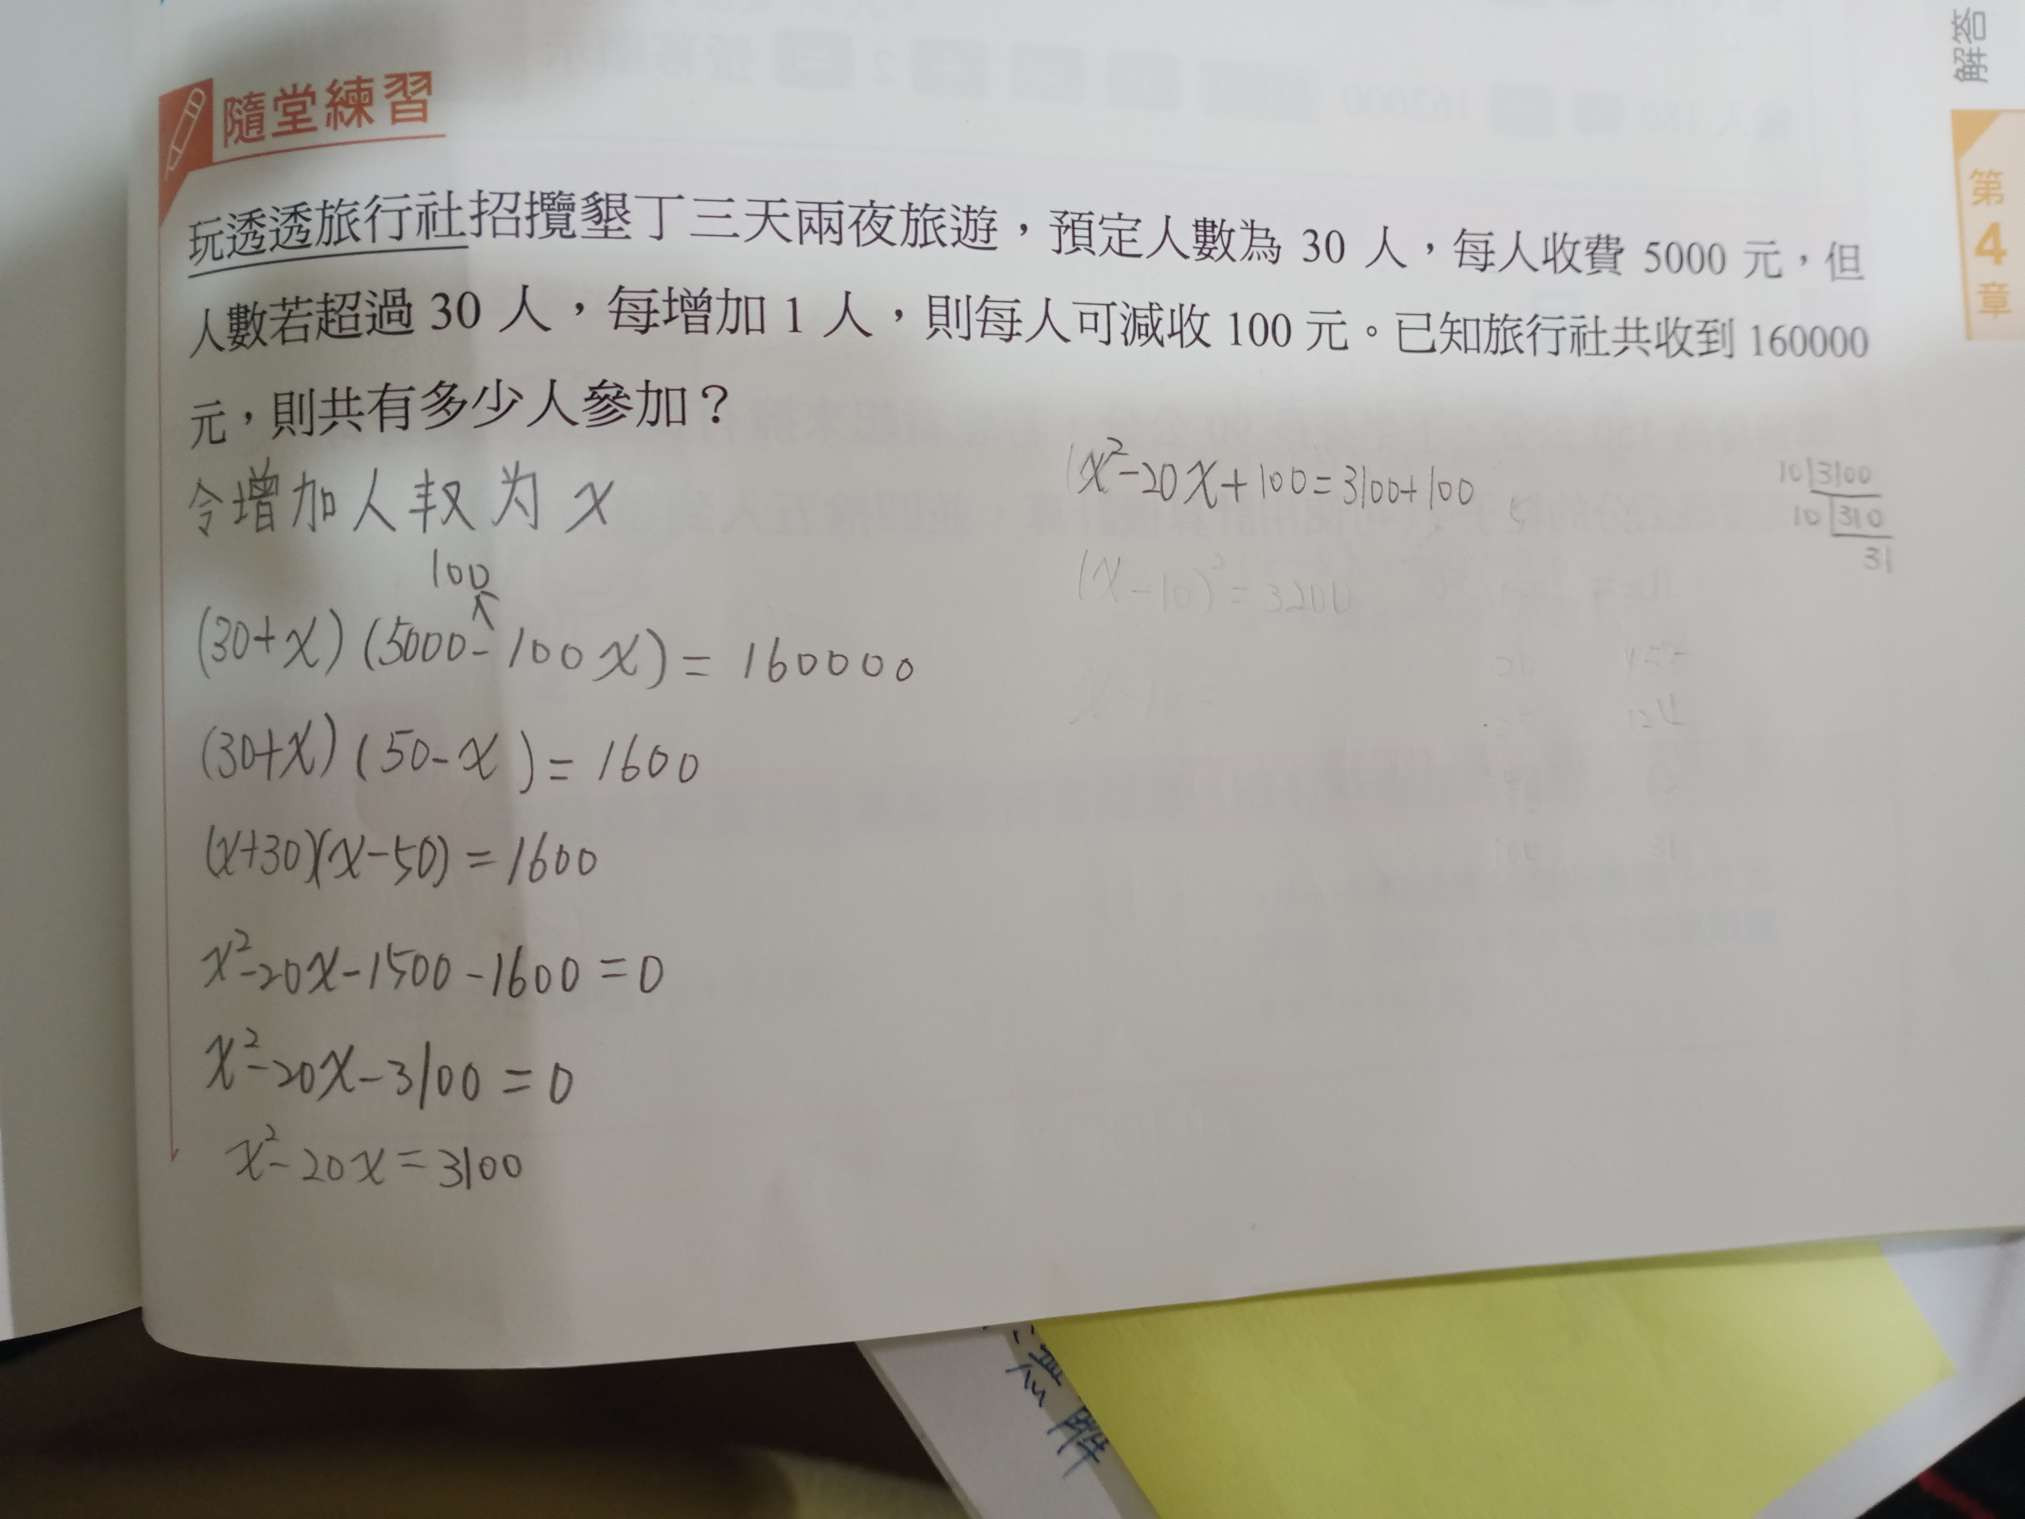 解答
第4章
隨堂練習
玩透透旅行社招攬墾丁三天兩夜旅遊，預定人數為 30 人，每人收費 5000 元，但
人數若超過 30 人，每增加 1 人，則每人可減收 100 元。已知旅行社共收到 160000
元，則共有多少人參加？
令增加人数为 x
100
(30+x)(5000-100x)=160000
(30+x)(50-x)=1600
(x+30)(x-50)=1600
x²-20x-1500-1600=0
x²-20x-3100=0
x²-20x=3100
x²-20x+100=3100+100
(x-10)²=3200
10 3100
10 310
31
解